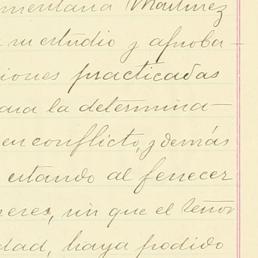 mentaria Martinez
su estudio y aproba-
iones practicadas
ara la determina-
en conflicto, y demás
estando al fenecer
eres, sin que el Señor
dad, haya podido